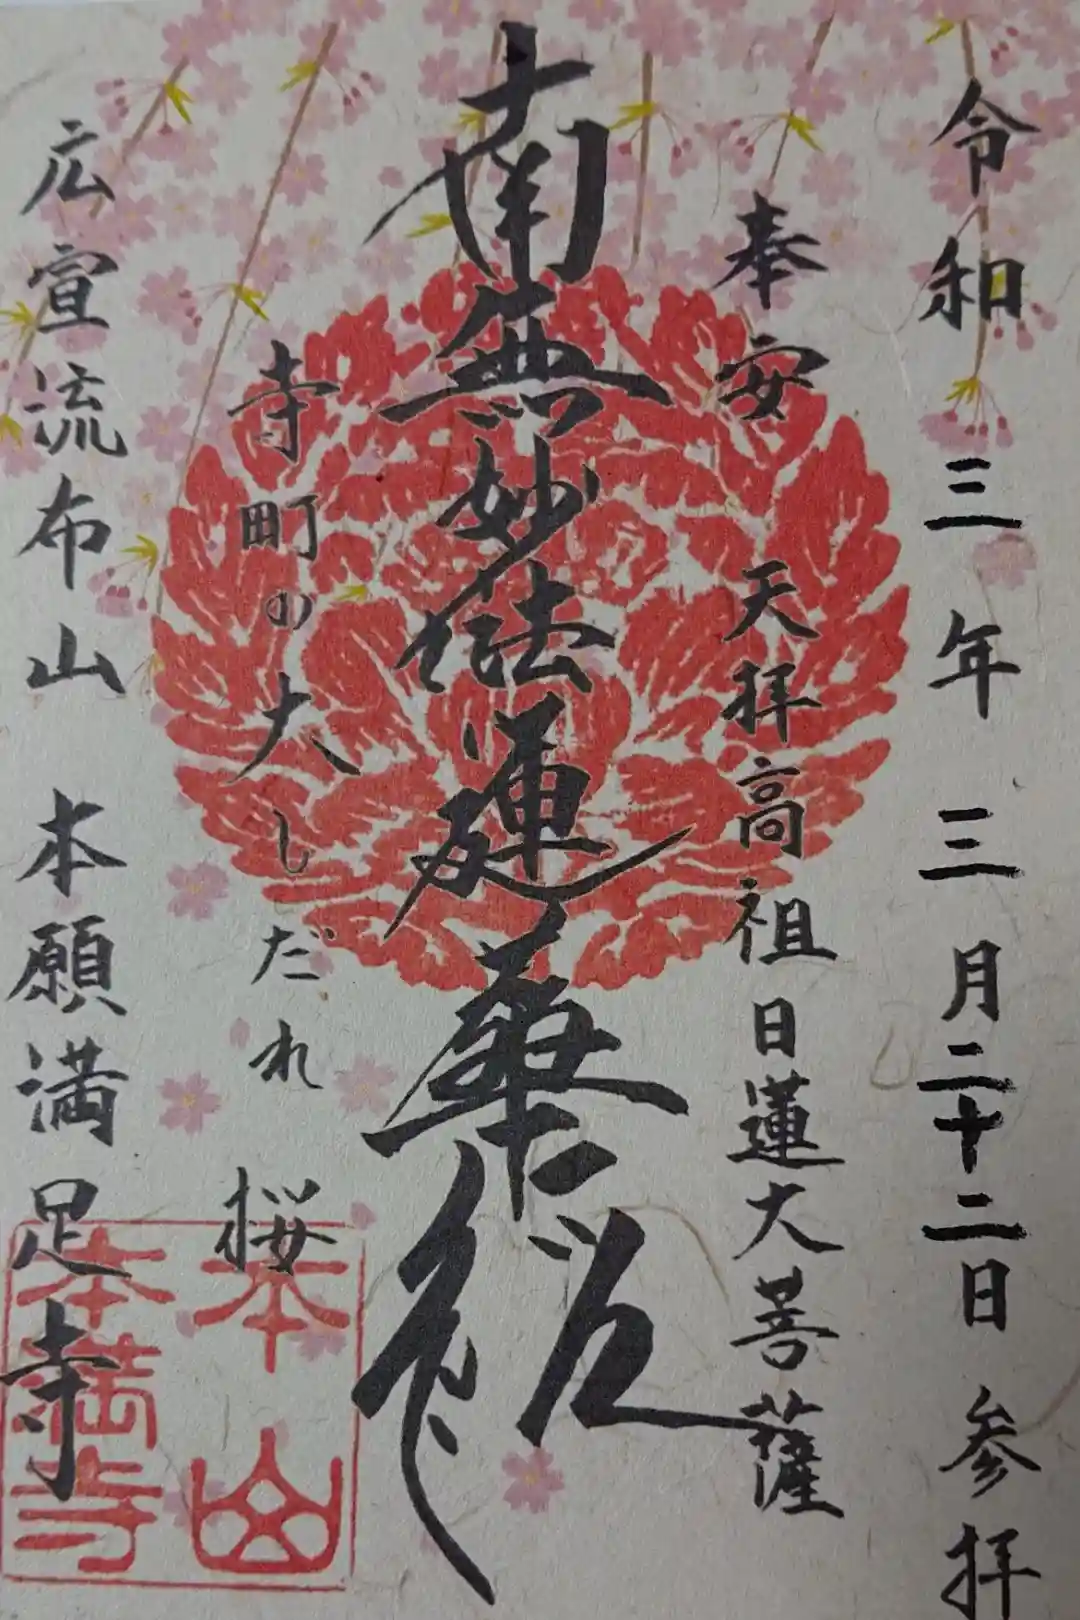 令和三年三月二十二日参拝
奉安 天拝高祖日蓮大菩薩
南無妙法蓮華経
寺町の大しだれ 桜
広宣流布山 本願満足寺
本山
本満寺